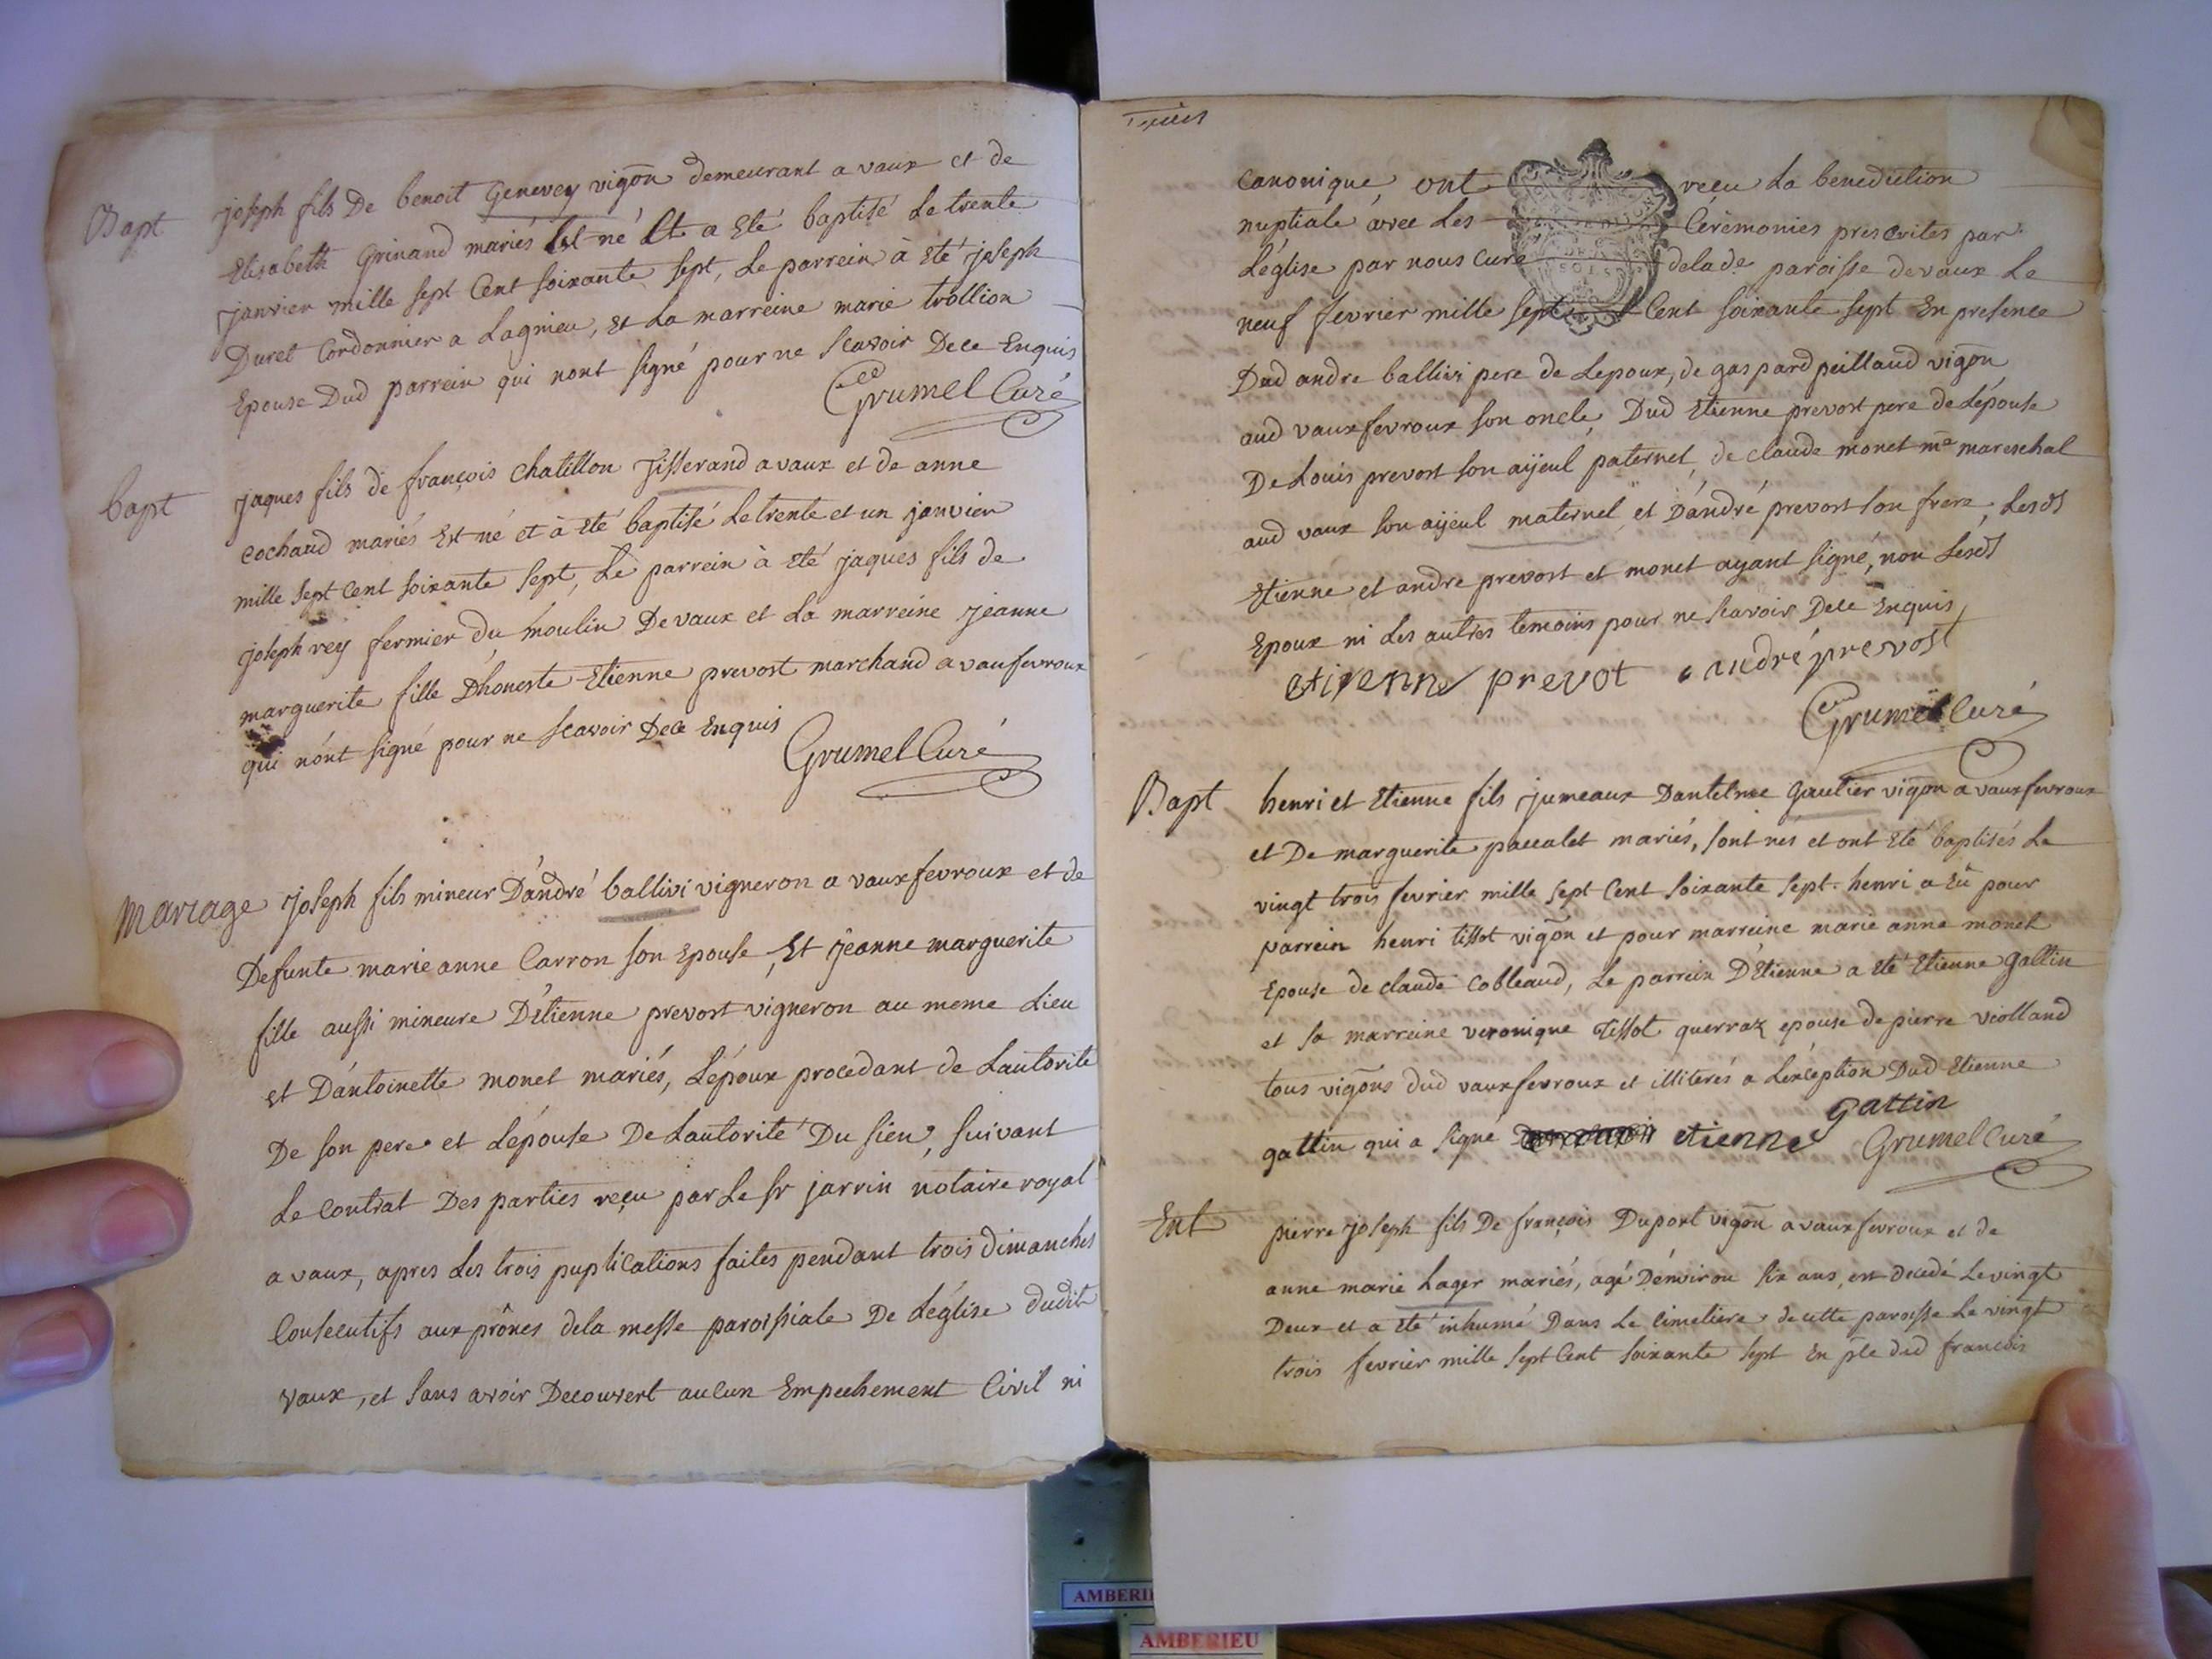 Bapt
joseph fils De benoit Genevey vigõn demeurant a vaux et de
Elisabeth Grinand mariés Est né Et a Eté baptisé Le trente
janvier mille sept Cent soixante sept, Le parrein à Eté joseph
Duret Cordonnier a Lagnieu, Et La marreine marie trollion
Epouse Dud parrein qui nont signé pour ne scavoir Dece Enquis
Grumel Curé
bapt
jaques fils de françois chatillon Tisserand a vaux et de anne
cochaud mariés Est né et à Eté baptisé Le trente et un janvier
mille sept Cent soixante sept, Le parrein à Eté jaques fils de
joseph rey fermier du moulin De vaux et La marreine jeanne
marguerite fille Dhoneste Etienne prevost marchand a vaufevroux
qui n'ont signé pour ne scavoir Dece Enquis
Grumel Curé
Mariage
joseph fils mineur D'andré ballivi vigneron a vauxfevroux et de
Defunte marie anne Carron son Epouse, Et jeanne marguerite
fille aussi mineure D'Etienne prevost vigneron au meme Lieu
et D'antoinette monet mariés, L'époux procedant de Lautorite
De son pere et L'épouse De Lautorité Du sien, suivant
Le Contrat Des parties reçu par Le sr jarrin notaire royal
a vaux, apres Les trois puplications faites pendant trois dimanches
Consecutifs aux prônes dela messe paroissiale De L'église dudit
vaux, et sans avoir Decouvert aucun Empechement Civil ni
canonique ont reçu La benediction
nuptiale avec Les Cérémonies prescrites par
L'église par nous Curé delade paroisse devaux Le
neuf fevrier mille sept Cent soixante sept En presence
Dud andre ballivi pere de Lepoux, de gaspard peilland vigõn
aud vauxfevroux son oncle, Dud Etienne prevost pere de L'épouse
De Louis prevost son aijeul paternel, de claude monet me mareschal
aud vaux son aijeul maternel et D'andré prevost son frere, Lesds
Etienne et andre prevost et monet ayant signé, non Lesds
Epoux ni Les autres temoins pour ne scavoir Dece Enquis
etienne prevot andré prevost
Grumel Curé
Bapt
henri et Etienne fils jumeaux Dantelme Gautier vigõn a vauxfevroux
et De marguerite paccalet mariés, sont nés et ont Eté baptisés Le
vingt trois fevrier mille sept Cent soixante sept. henri a Eû pour
parrein henri tissot vigõn et pour marreine marie anne monet
Epouse de claude Cobleaud, Le parrein D'Etienne a Eté Etienne gattin
et sa marreine veronique Tissot querraz epouse de pierre violland
tous vigõns dud vauxfevroux et illiterés a L'exception Dud Etienne
gattin qui a signé etienne Gattin
Grumel Curé
Ent
pierre joseph fils De françois Duport vigõn a vauxfevroux et de
anne marie Lager mariés, agé D'environ six ans, est decedé Le vingt
Deux et a Eté inhumé Dans Le Cimetiere de cette paroisse Le vingt
trois fevrier mille sept Cent soixante sept En pce dud francois
AMBERI
AMBERIEU